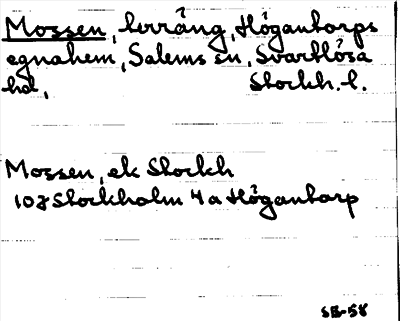 Mossen, terräng, Högantorps
egnahem, Salems sn, Svartlösa
hd, Stockh. l.
Mossen, ek Stockh
10I8 Stockholm 4a Högantorp
SB-58